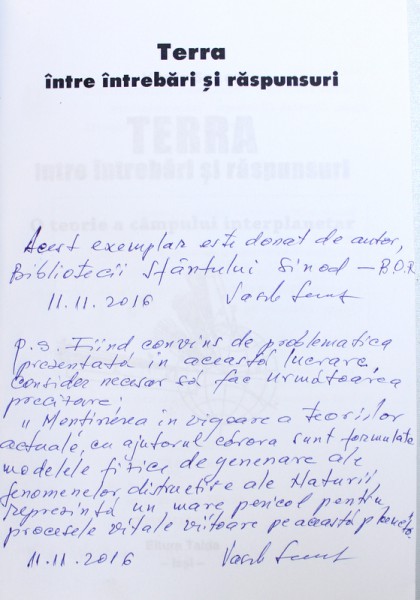 Terra
între întrebări și răspunsuri
TERRA
între întrebări și răspunsuri
O teorie a câmpului interplanetar
Acest exemplar este donat de autor,
Bibliotecii Sfântului Sinod – B.O.R
11.11.2016 Vasile
P.S. Fiind convins de problematica
prezentată în această lucrare,
consider necesar să fac următoarea
precizare:
„ Menținerea în vigoare a teoriilor
actuale, cu ajutorul cărora sunt formulate
modelele fizice de generare ale
fenomenelor distructive ale Naturii
reprezintă un mare pericol pentru
procesele vitale viitoare pe această planetă.
11.11.2016 Vasile
Iași